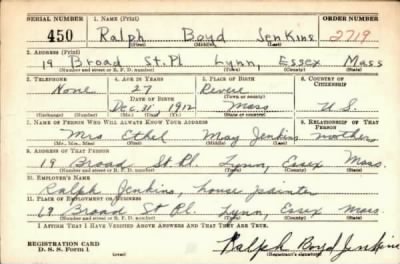 SERIAL NUMBER 1. NAME (Print) ORDER NUMBER
450 Ralph Boyd Jenkins 2719
(First) (Middle) (Last)
2. ADDRESS (Print)
19 Broad St. Pl. Lynn, Essex Mass
(Number and street or R. F. D. number) (Town) (County) (State)
3. TELEPHONE 4. AGE IN YEARS 5. PLACE OF BIRTH 6. COUNTRY OF CITIZENSHIP
None 27 Revere
DATE OF BIRTH (Town or county)
Dec. 21, 1912 Mass U.S.
(Exchange) (Number) (Mo.) (Day) (Yr.) (State or country)
7. NAME OF PERSON WHO WILL ALWAYS KNOW YOUR ADDRESS 8. RELATIONSHIP OF THAT PERSON
Mrs Ethel May Jenkins mother
(Mr., Mrs., Miss) (First) (Middle) (Last)
9. ADDRESS OF THAT PERSON
19 Broad St. Pl. Lynn, Essex Mass.
(Number and street or R. F. D. number) (Town) (County) (State)
10. EMPLOYER'S NAME
Ralph Jenkins, house painter
11. PLACE OF EMPLOYMENT OR BUSINESS
19 Broad St Pl. Lynn, Essex Mass.
(Number and street or R. F. D. number) (Town) (County) (State)
I AFFIRM THAT I HAVE VERIFIED ABOVE ANSWERS AND THAT THEY ARE TRUE.
REGISTRATION CARD
D. S. S. Form 1 (over) Ralph Boyd Jenkins
(Registrant's signature)